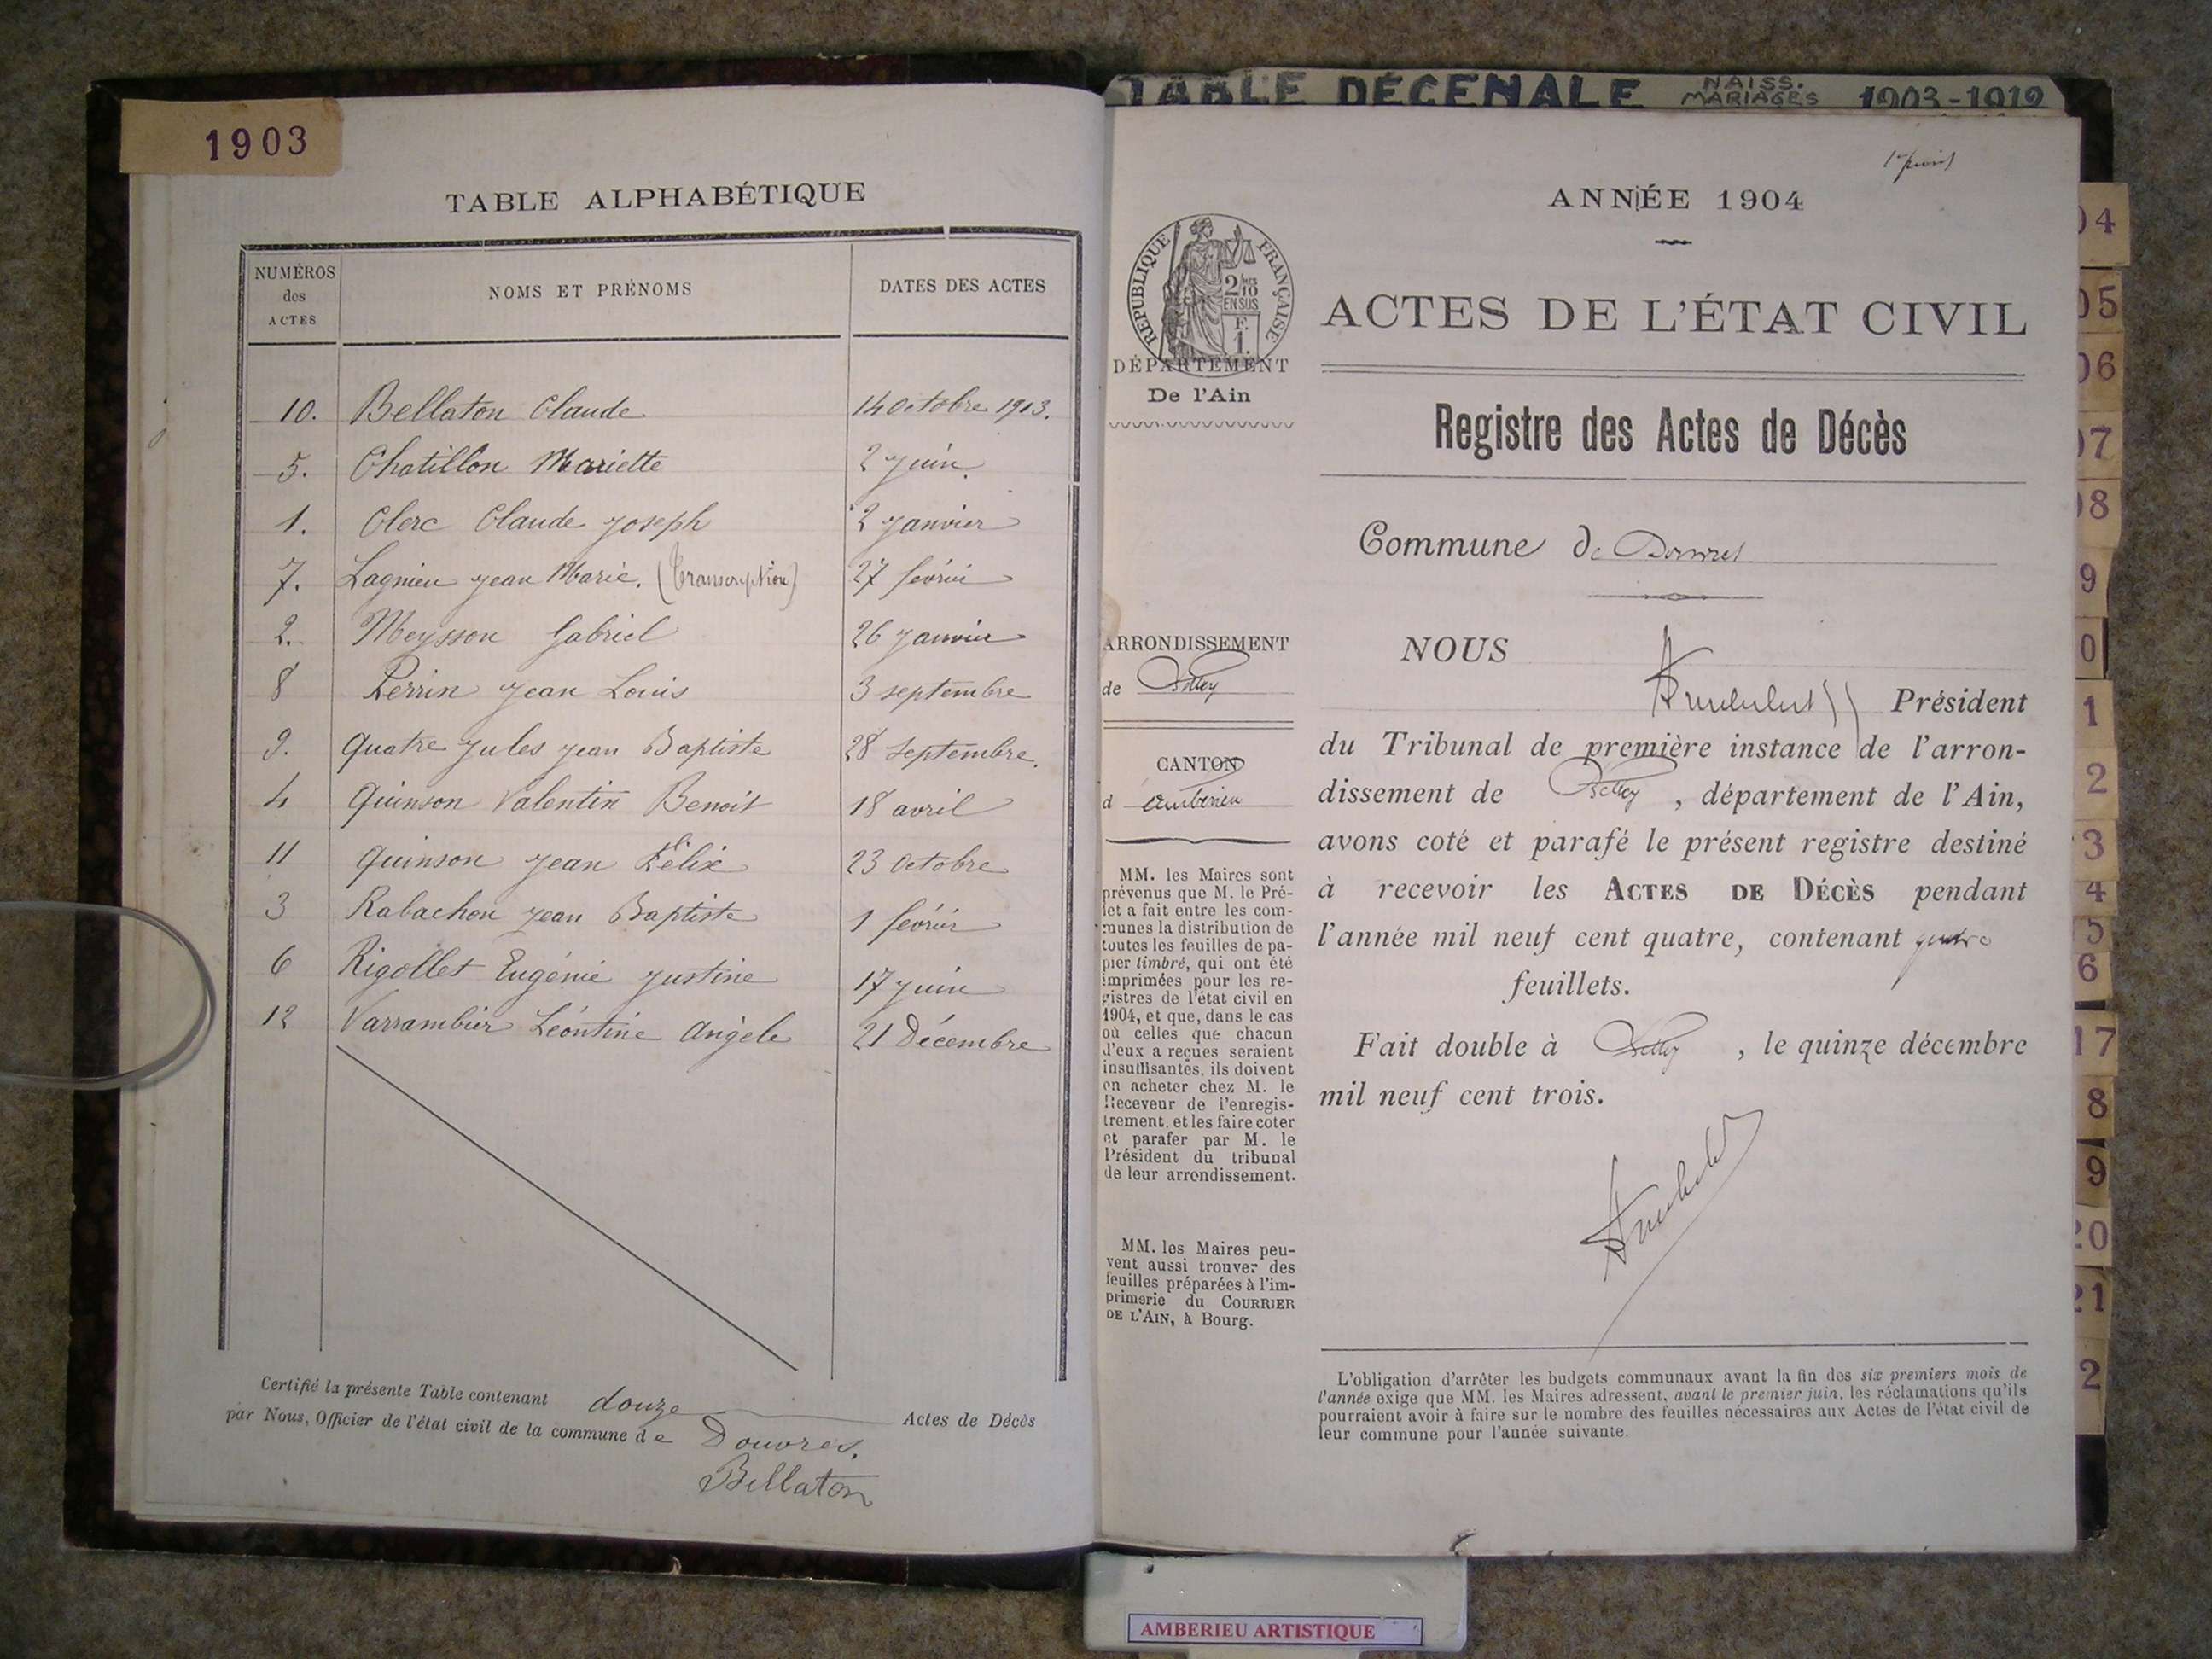 1903
TABLE ALPHABÉTIQUE
NUMÉROS des ACTES
NOMS ET PRÉNOMS
DATES DES ACTES
10. Bellaton Claude 14 Octobre 1913.
5. Chatillon Mariette 2 juin.
1. Clerc Claude Joseph 2 Janvier
7. Lagnieu Jean Marie. (Transcription) 27 février
2. Meysson Gabriel 26 Janvier
8 Perrin Jean Louis 3 septembre
9. Quatre Jules Jean Baptiste 28 Septembre.
4 Quinson Valentin Benoit 18 avril
11 Quinson Jean Félix 23 Octobre
3 Rabachon Jean Baptiste 1 février
6 Rigollet Eugénie Justine 17 juin
12 Varrambier Léontine Angèle 21 Décembre
Certifié la présente Table contenant douze Actes de Décès
par Nous, Officier de l'état civil de la commune de Douvres.
Bellaton
TABLE DÉCENALE NAISS. MARIAGES 1903-1912
ANNÉE 1904
RÉPUBLIQUE FRANÇAISE
2/10 EN SUS
F. 1.
DÉPARTEMENT
De l'Ain
ACTES DE L'ÉTAT CIVIL
Registre des Actes de Décès
Commune de Douvres
ARRONDISSEMENT
de Belley
CANTON
d Ambérieu
MM. les Maires sont
prévenus que M. le Pré-
fet a fait entre les com-
munes la distribution de
toutes les feuilles de pa-
pier timbré, qui ont été
imprimées pour les re-
gistres de l'état civil en
1904, et que, dans le cas
où celles que chacun
d'eux a reçues seraient
insuffisantes, ils doivent
en acheter chez M. le
Receveur de l'enregis-
trement, et les faire coter
et parafer par M. le
Président du tribunal
de leur arrondissement.
MM. les Maires peu-
vent aussi trouver des
feuilles préparées à l'im-
primerie du COURRIER
DE L'AIN, à Bourg.
NOUS
Président
du Tribunal de première instance de l'arron-
dissement de Belley, département de l'Ain,
avons coté et parafé le présent registre destiné
à recevoir les ACTES DE DÉCÈS pendant
l'année mil neuf cent quatre, contenant quatre
feuillets.
Fait double à Belley, le quinze décembre
mil neuf cent trois.
L'obligation d'arrêter les budgets communaux avant la fin des six premiers mois de
l'année exige que MM. les Maires adressent, avant le premier juin, les réclamations qu'ils
pourraient avoir à faire sur le nombre des feuilles nécessaires aux Actes de l'état civil de
leur commune pour l'année suivante.
04
05
06
07
08
9
0
1
2
3
4
5
6
17
8
9
20
21
2
AMBERIEU ARTISTIQUE